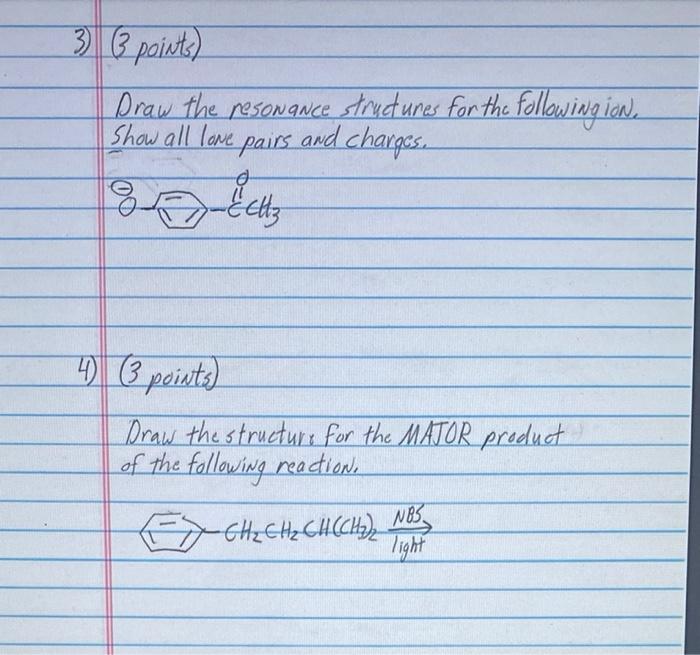 3) (3 points)
Draw the resonance structures for the following ion.
Show all lone pairs and charges.
O
⊖
O
-CCH3
4) (3 points)
Draw the structure for the MAJOR product
of the following reaction.
-CH2CH2CH(CH3)2 NBS
light